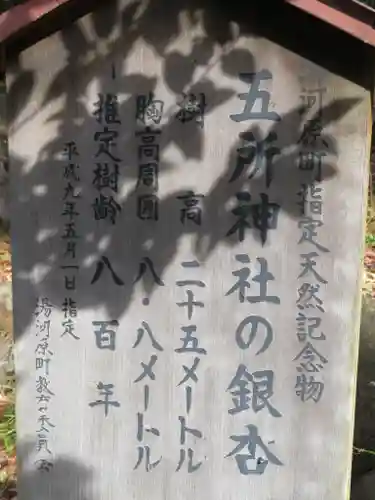 河原町指定天然記念物
五所神社の銀杏
樹 高 二十五メートル
胸高周囲 八・八メートル
推定樹齢 八百年
平成九年五月一日指定
湯河原町教育委員会